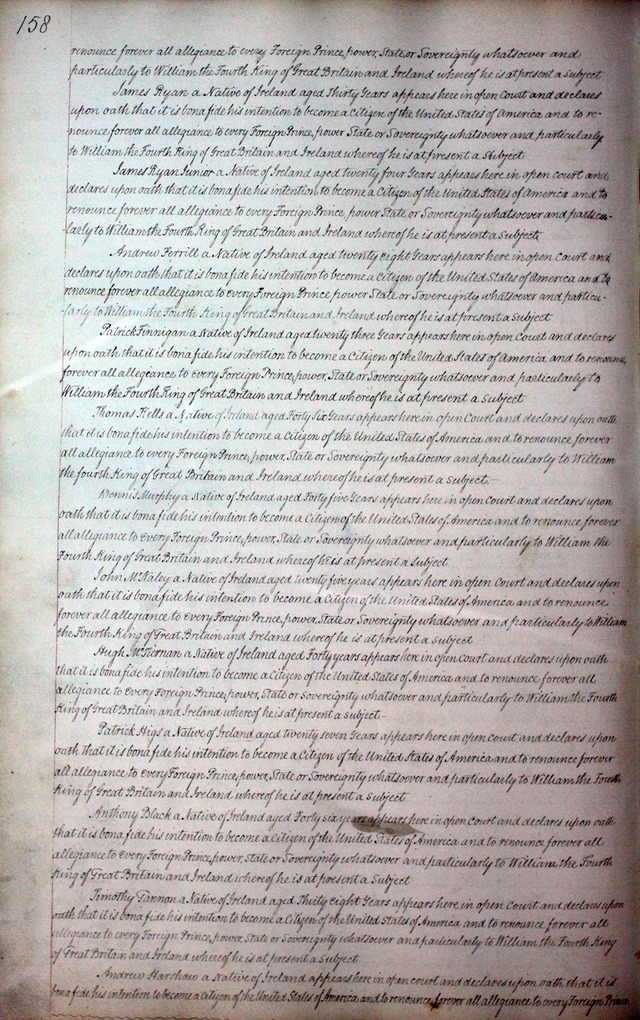 158
renounce forever all allegiance to every Foreign Prince, power, State or Sovereignty whatsoever and
particularly to William the Fourth King of Great Britain and Ireland whereof he is at present a Subject
James Ryan a Native of Ireland aged Thirty Years appears here in open Court and declares
upon oath that it is bona fide his intention to become a Citizen of the United States of America and to re-
nounce forever all allegiance to every Foreign Prince, power State or Sovereignty whatsoever and particularly
to William the Fourth King of Great Britain and Ireland whereof he is at present a Subject
James Ryan Junior a Native of Ireland aged twenty four Years appears here in open court and
declares upon oath that it is bona fide his intention to become a Citizen of the United States of America and to
renounce forever all allegiance to every Foreign Prince, power State or Sovereignty whatsoever and particu-
larly to William the Fourth King of Great Britain and Ireland whereof he is at present a Subject
Andrew Ferrill a Native of Ireland aged twenty eight Years appears here in open Court and
declares upon oath that it is bona fide his intention to become a Citizen of the United States of America and to
renounce forever all allegiance to every Foreign Prince, power State or Sovereignty whatsoever and particu-
larly to William the Fourth King of Great Britain and Ireland whereof he is at present a Subject
Patrick Finnigan a Native of Ireland aged twenty three Years appears here in open Court and declares
upon oath that it is bona fide his intention to become a Citizen of the United States of America and to renounce
forever all allegiance to every Foreign Prince, power, State or Sovereignty whatsoever and particularly to
William the Fourth King of Great Britain and Ireland whereof he is at present a Subject
Thomas Kells a Native of Ireland aged Forty Six Years appears here in open Court and declares upon oath
that it is bona fide his intention to become a Citizen of the United States of America and to renounce forever
all allegiance to every Foreign Prince, power, State or Sovereignty whatsoever and particularly to William
the fourth King of Great Britain and Ireland whereof he is at present a Subject.
Dennis Murphy a Native of Ireland aged Forty five Years appears here in open Court and declares upon
oath that it is bona fide his intention to become a Citizen of the United States of America and to renounce forever
all allegiance to every Foreign Prince, power, State or Sovereignty whatsoever and particularly to William the
Fourth King of Great Britain and Ireland whereof he is at present a Subject
John McNaley a Native of Ireland aged twenty five years appears here in open Court and declares upon
oath that it is bona fide his intention to become a Citizen of the United States of America and to renounce
forever all allegiance to every Foreign Prince, power, State or Sovereignty whatsoever and particularly to William
the Fourth King of Great Britain and Ireland whereof he is at present a Subject
Hugh McTiernan a Native of Ireland aged Forty years appears here in open Court and declares upon oath
that it is bona fide his intention to become a Citizen of the United States of America and to renounce forever all
allegiance to Every Foreign Prince, power, State or Sovereignty whatsoever and particularly to William the Fourth
King of Great Britain and Ireland whereof he is at present a Subject.
Patrick Higs a Native of Ireland aged twenty seven Years appears here in open court and declares upon
oath that it is bona fide his intention to become a Citizen of the United States of America and to renounce forever
all allegiance to every Foreign Prince, power, State or Sovereignty whatsoever and particularly to William the Fourth
King of Great Britain and Ireland whereof he is at present a Subject
Anthony Black a Native of Ireland aged Forty six years appears here in open Court and declares upon oath
that it is bona fide his intention to become a Citizen of the United States of America and to renounce forever all
allegiance to every Foreign Prince, power, State or Sovereignty whatsoever and particularly to William the Fourth
King of Great Britain and Ireland whereof he is at present a Subject
Timothy Gannon a Native of Ireland aged Thirty eight Years appears here in open Court and declares upon
oath that it is bona fide his intention to become a Citizen of the United States of America and to renounce forever all
allegiance to every Foreign Prince, power, State or Sovereignty whatsoever and particularly to William the Fourth King
of Great Britain and Ireland whereof he is at present a Subject
Andrew Harshaw a Native of Ireland appears here in open court and declares upon oath that it is
bona fide his intention to become a Citizen of the United States of America and to renounce forever all allegiance to every Foreign Prince